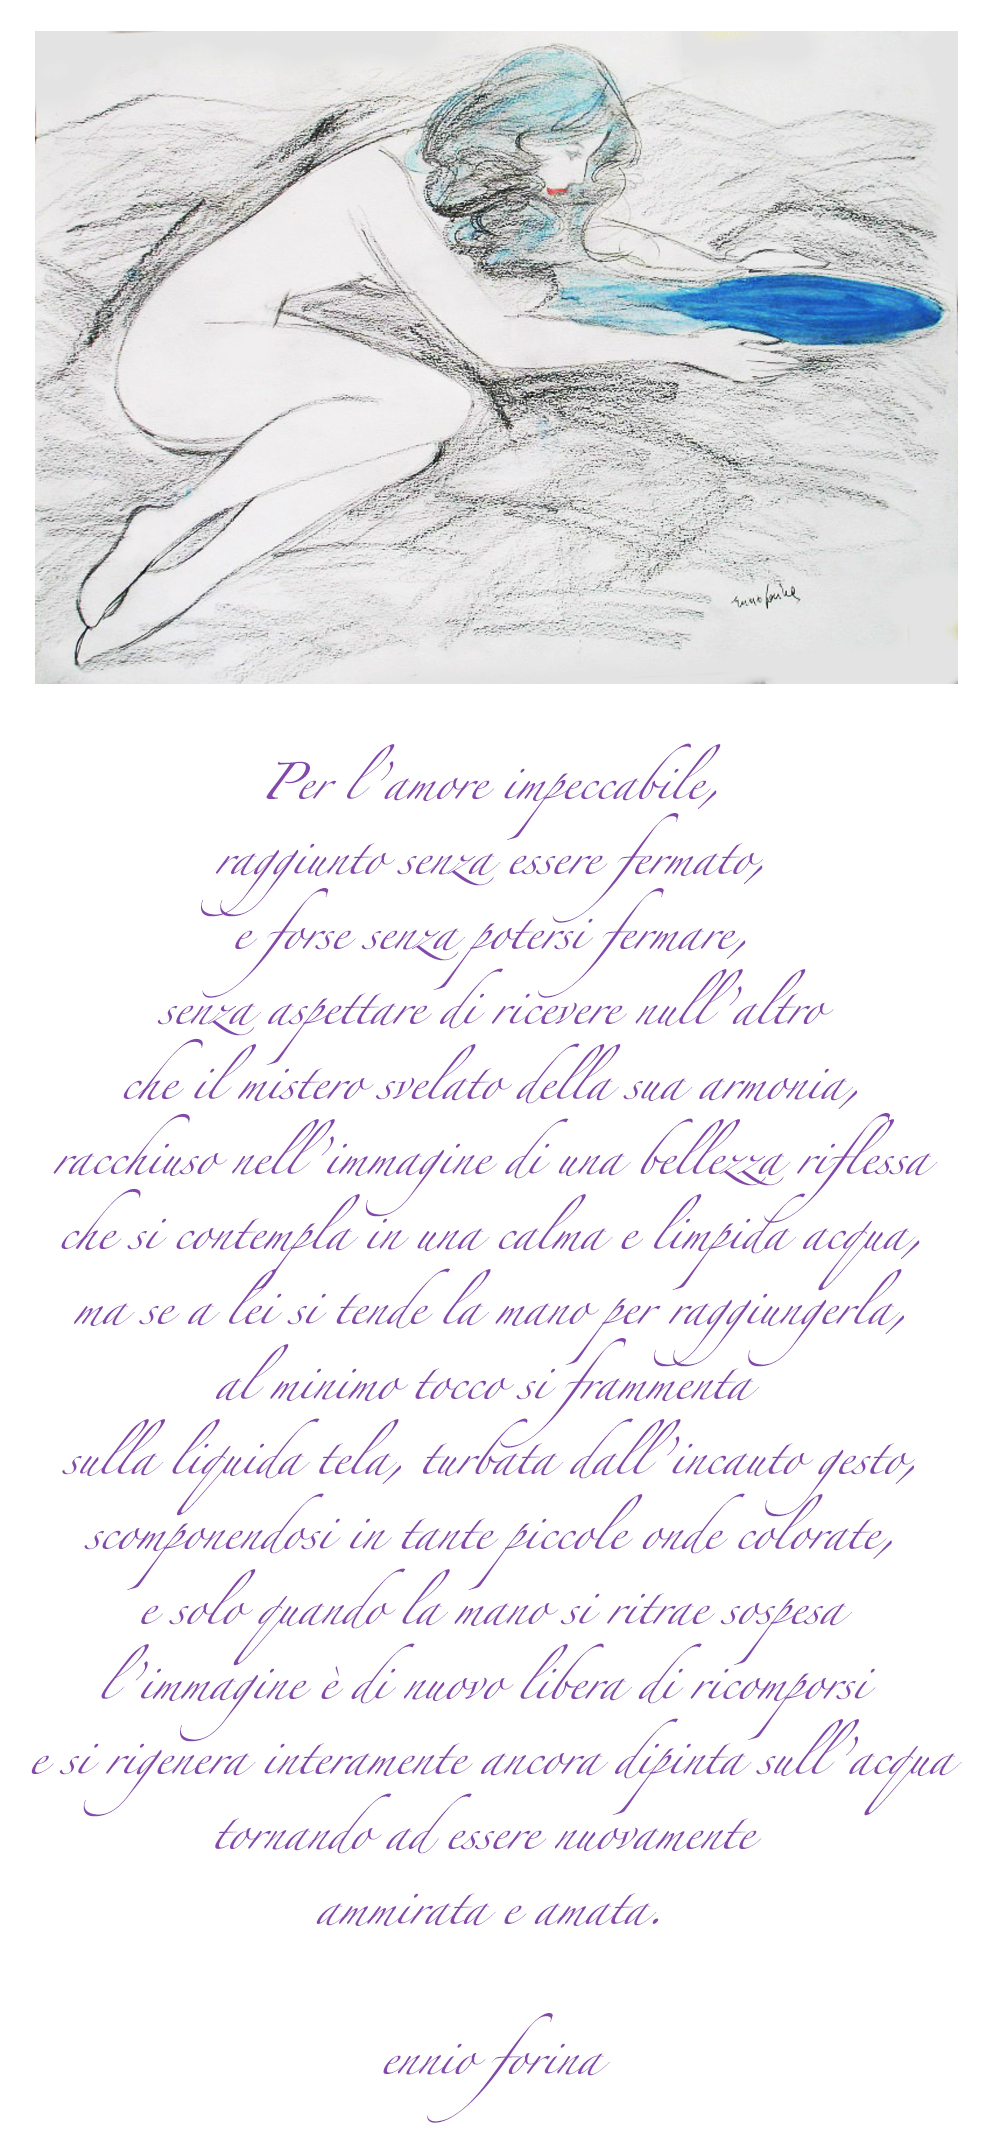 ennio forina
Per l'amore impeccabile,
raggiunto senza essere fermato,
e forse senza potersi fermare,
senza aspettare di ricevere null'altro
che il mistero svelato della sua armonia,
racchiuso nell'immagine di una bellezza riflessa
che si contempla in una calma e limpida acqua,
ma se a lei si tende la mano per raggiungerla,
al minimo tocco si frammenta
sulla liquida tela, turbata dall'incauto gesto,
scomponendosi in tante piccole onde colorate,
e solo quando la mano si ritrae sospesa
l'immagine è di nuovo libera di ricomporsi
e si rigenera interamente ancora dipinta sull'acqua
tornando ad essere nuovamente
ammirata e amata.
ennio forina